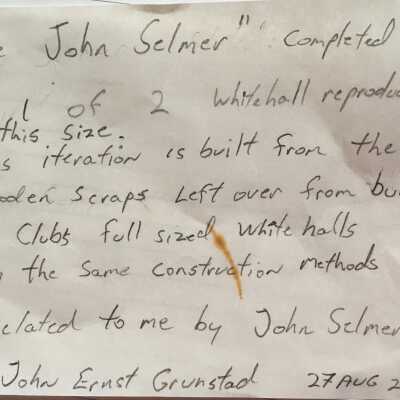 John Selmer" Completed
1 of 2 Whitehall
this size.
iteration is built from the
scraps Left over from
Clubs full sized Whitehalls
the same construction methods
to me by John Selmer
John Ernst Grunstad 27 AUG